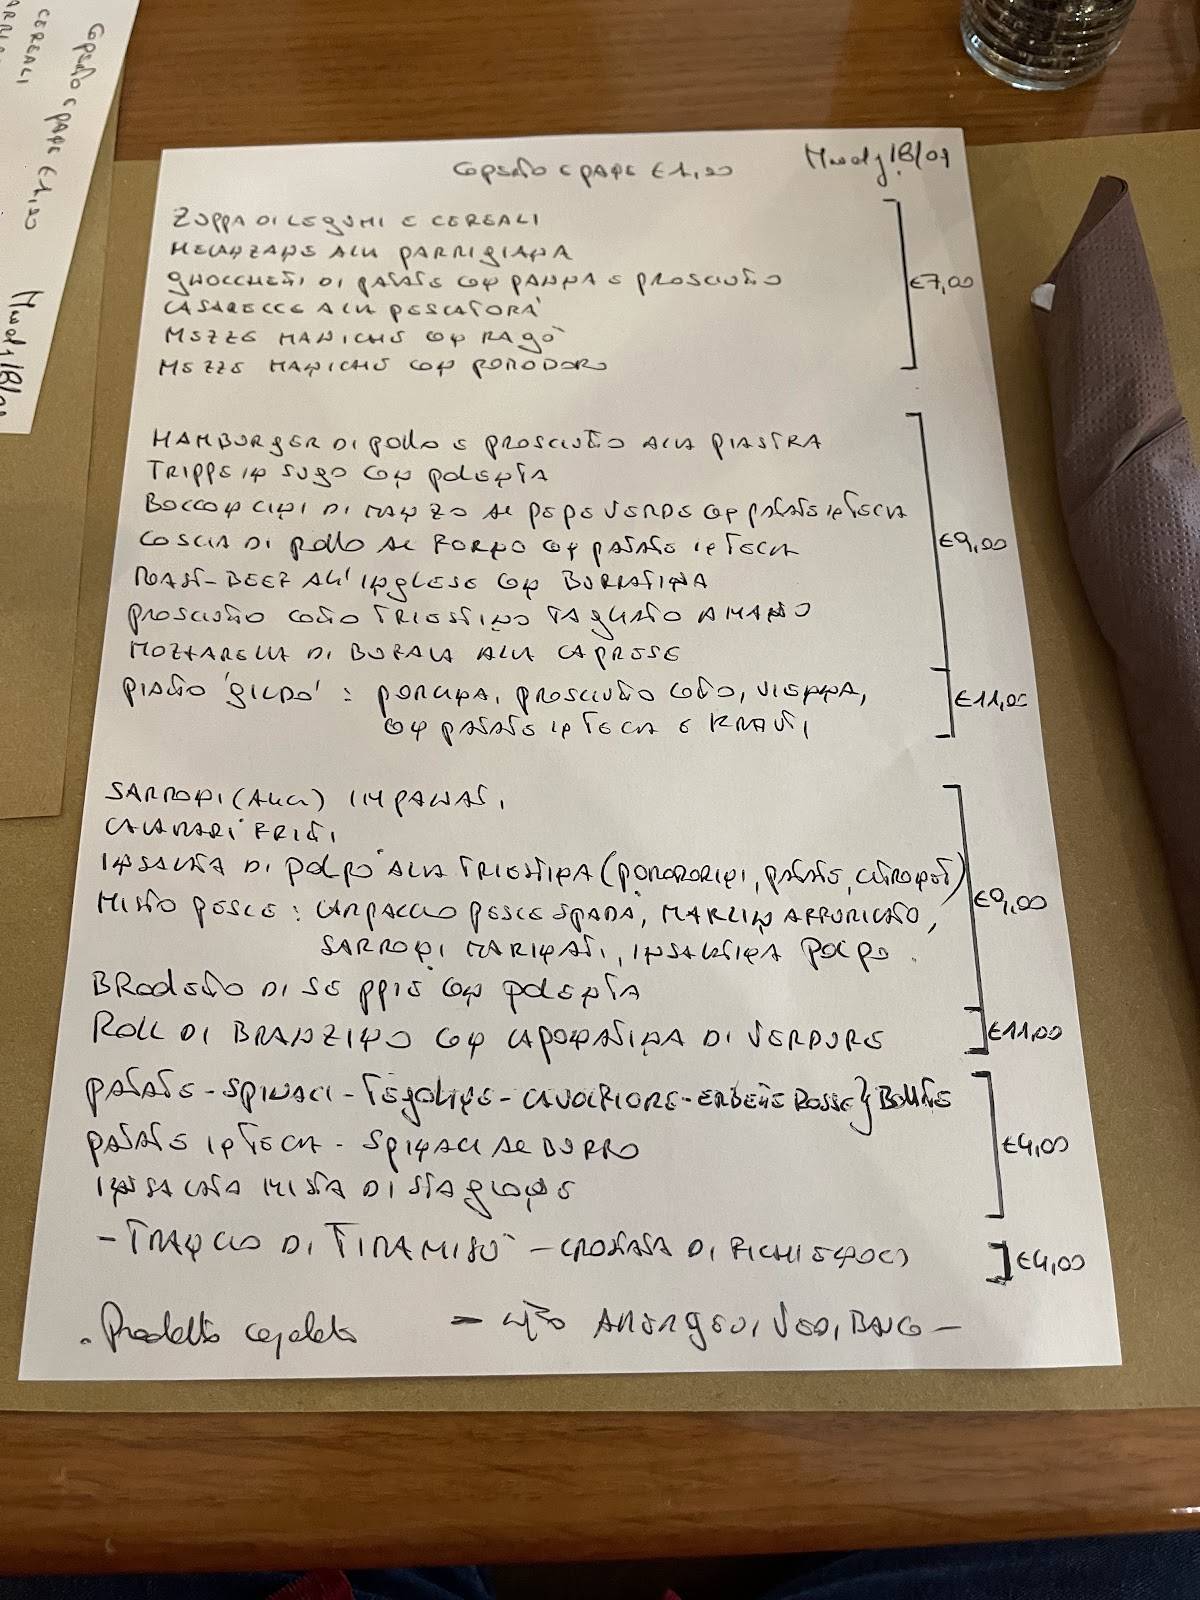 COPERTO E PANE €1,20
Mercoledì 18/09
ZUPPA DI LEGUMI E CEREALI
MELANZANE ALLA PARMIGIANA
GNOCCHETTI DI PATATE CON PANNA E PROSCIUTTO
CASARECCE ALLA PESCATORA
MEZZE MANICHE CON RAGÙ
MEZZE MANICHE CON POMODORO
€7,00
HAMBURGER DI POLLO E PROSCIUTTO ALLA PIASTRA
TRIPPE IN SUGO CON POLENTA
BOCCONCINI DI MANZO AL PEPE VERDE CON PATATE IN TECIA
COSCIA DI POLLO AL FORNO CON PATATE IN TECIA
ROAST-BEEF ALL'INGLESE CON BURRATINA
PROSCIUTTO COTTO TRIESTINO TAGLIATO A MANO
MOZZARELLA DI BUFALA ALLA CAPRESE
€9,00
PIATTO 'GILDO': PORCINA, PROSCIUTTO COTTO, VIENNA,
CON PATATE IN TECIA E KRAUTI
€11,00
SARDONI (ALICI) IMPANATI
CALAMARI FRITTI
INSALATA DI POLPO ALLA TRIESTINA (POMODORINI, PATATE, CETRIOLI)
MISTO PESCE: CARPACCIO PESCE SPADA, MARLIN AFFUMICATO,
SARDONI MARINATI, INSALATINA POLPO.
BRODETTO DI SEPPIE CON POLENTA
€9,00
ROLL DI BRANZINO CON CAPONATINA DI VERDURE
€11,00
PATATE - SPINACI - TEGOLINE - CAVOLFIORE - ERBETTE ROSSE} BOLLITE
PATATE IN TECIA - SPINACI AL BURRO
INSALATA MISTA DI STAGIONE
€4,00
- TRANCIO DI TIRAMISÙ - CROSTATA DI FICHI E NOCI
€4,00
. Prodotto congelato - ALLERGENI, VEDI, BANCO -
COPERTO E PANE €1,20
CEREALI